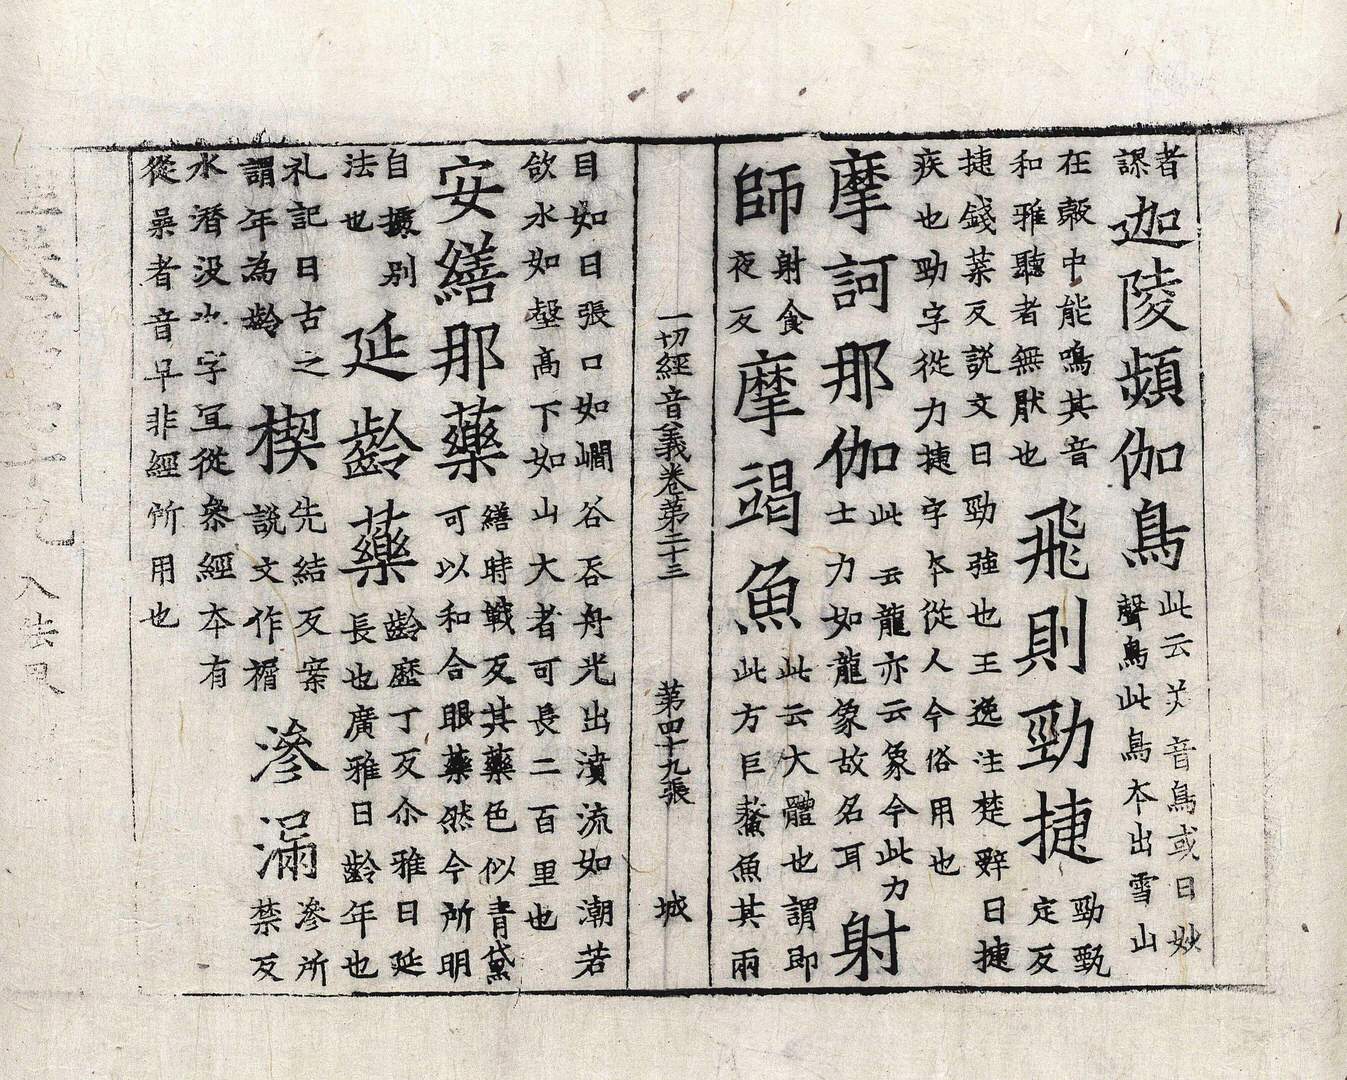 者
謬
迦陵頻伽鳥
此云义音鳥或曰妙
聲鳥此鳥本出雪山
在㲉中能鳴其音
和雅聽者無猒也
飛則勁捷
勁甄
定反
捷錢葉反説文曰勁強也王逸注楚辝曰捷
疾也勁字從力捷字本從人今俗用也
摩訶那伽
此云龍亦云象今此力
士力如龍象故名耳
射
師
射食
夜反
摩竭魚
此云大體也謂即
此方巨鰲魚其兩
一切經音義卷第二十三 第四十九張 城
目如日張口如㵎谷吞舟光出濆流如潮若
欲水如壑高下如山大者可長二百里也
安繕那藥
繕時戰反其藥色似青黛
可以和合眼藥然今所明
自別
法也
延齡藥
齡歷丁反尒雅曰延
長也廣雅曰齡年也
礼記曰古之
謂年為齡
楔
先結反案
説文作揟
滲漏
滲所
禁反
水潛没也字宜從叅經本有
從喿者音早非經所用也